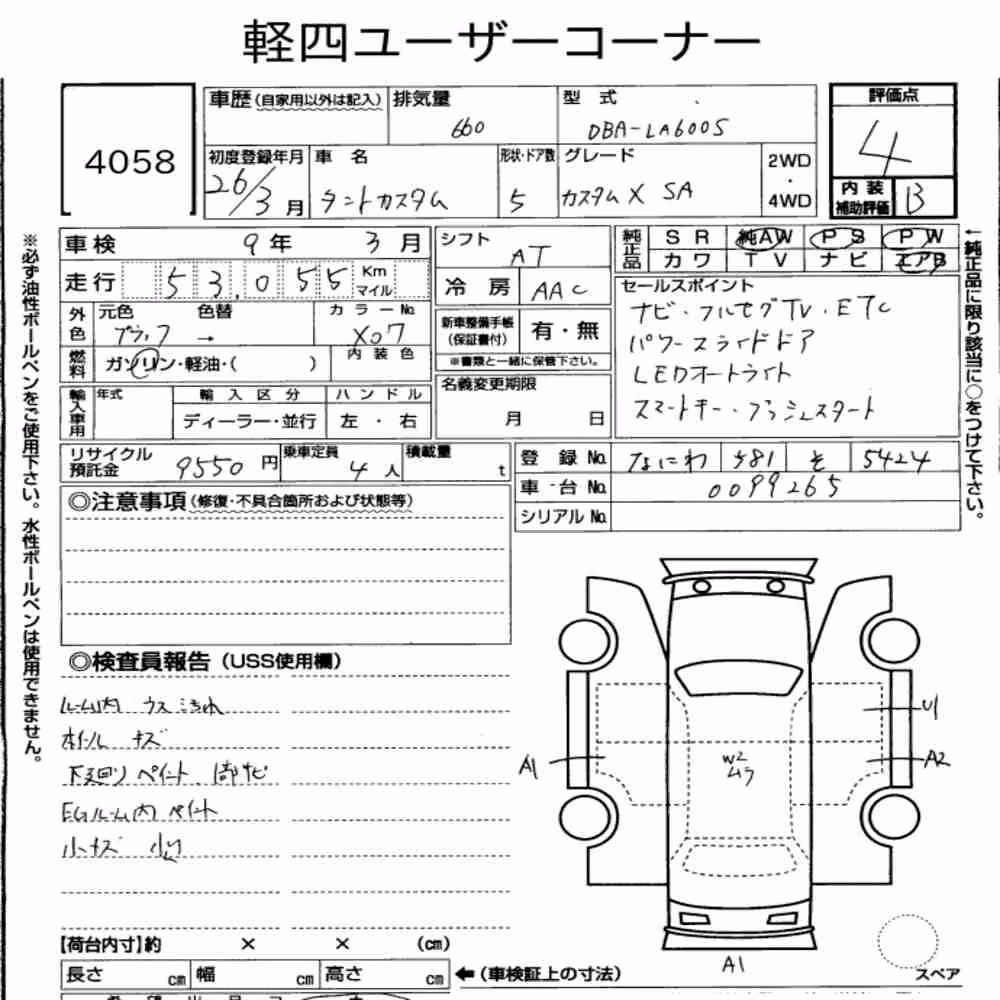 軽四ユーザーコーナー
4058
車歴(自家用以外は記入)
排気量
660
型 式
DBA-LA600S
評価点
4
初度登録年月
26/3月
車 名
タントカスタム
形状・ドア数
5
グレード
カスタムX SA
2WD
・
4WD
内 装
補助評価
B
車検 9年 3月
シフト
AT
純正品
SR 純AW PS PW
カワ TV ナビ エアB
走行 53,055 Km マイル
冷 房 AAC
セールスポイント
ナビ・フルセグTV・ETC
パワースライドドア
LEDオートライト
スマートキー・プッシュスタート
外色 元色 色替 カラーNo.
ブラック → X07
新車整備手帳
(保証書付)
有・無
※書類と一緒に保管下さい。
燃料 ガソリン・軽油・( )
内 装 色
名義変更期限
月 日
輸入車用 年式 輸 入 区 分 ハ ン ド ル
ディーラー・並行 左 ・ 右
リサイクル
預託金
9550円
乗車定員
4人
積載量
t
登 録 No. なにわ 581 そ 5424
車 台 No. 0099265
シリアル No.
◎注意事項(修復・不具合箇所および状態等)
◎検査員報告(USS使用欄)
ルーム内 ウス汚れ
ホイール キズ
下廻り ペイント 1部サビ
EGルーム内 ペイント
小キズ 小凹
U1
A1
W2
ムラ
A2
A1
スペア
【荷台内寸】約 × × (cm)
長さ cm 幅 cm 高さ cm
←(車検証上の寸法)
※必ず油性ボールペンをご使用下さい。水性ボールペンは使用できません。
←純正品に限り該当に○をつけて下さい。